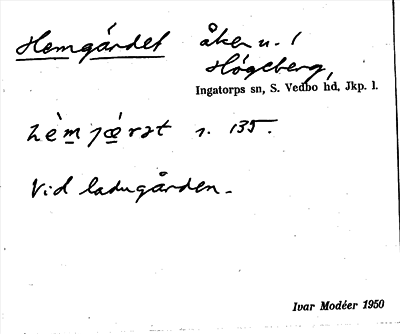 Hemgärdet åker u. /
Högeberg,
Ingatorps sn, S. Vedbo hd, Jkp. l.
s. 135.
Vid ladugården.
Ivar Modéer 1950